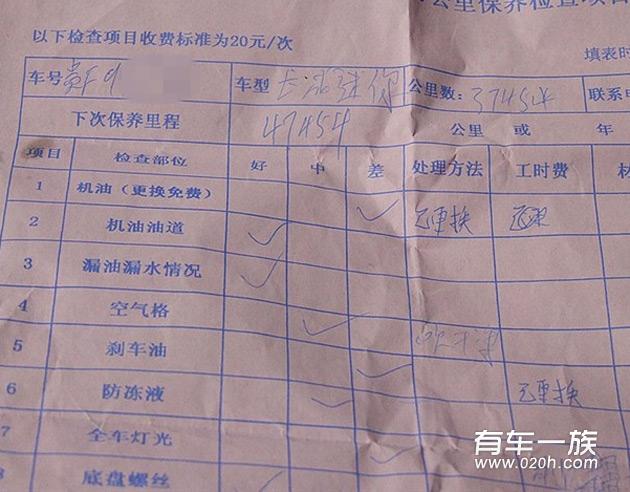 公里保养检查项目
以下检查项目收费标准为20元/次
填表时
车号 车型 长安 公里数：37454 联系电
下次保养里程 47454 公里 或 年
项目 检查部位 好 中 差 处理方法 工时费 材
1 机油（更换免费） ✓ 已更换
2 机油油道 ✓
3 漏油漏水情况 ✓
4 空气格 ✓
5 刹车油 ✓ 已更换
6 防冻液 ✓
7 全车灯光 ✓
8 底盘螺丝 ✓
有车一族
www.020h.com